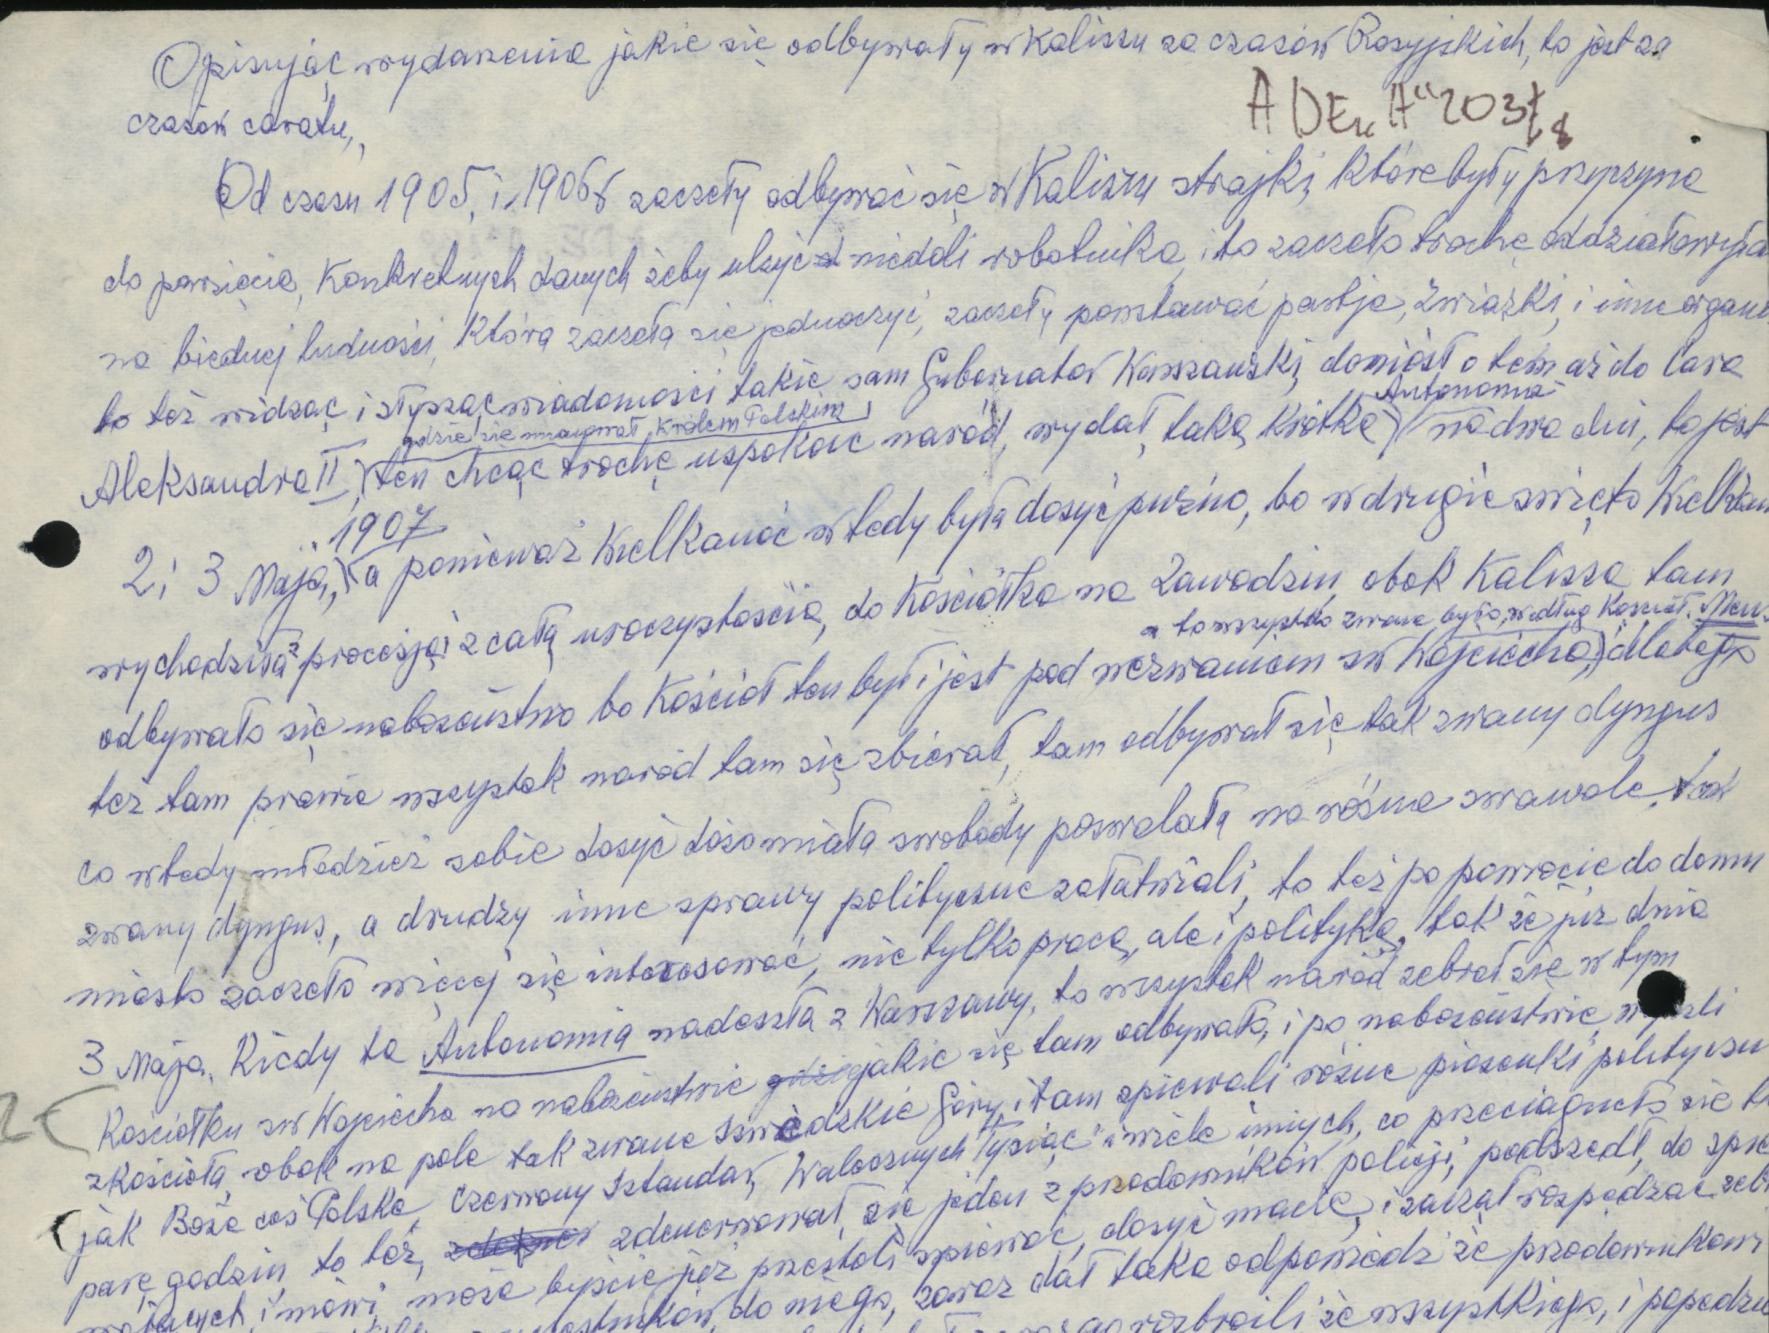 Opisując wydarzenia jakie się odbywały w Kaliszu za czasów Rosyjskich, to jest za
czasów caratu,
Od czasu 1905, i 1906r zaczeły odbywać się w Kaliszu strajki które były przyczyną
do powzięcia, Konkretnych danych żeby ulżyć niedoli robotnika, i to zaczeło trochę oddziaływa
na biednej ludności, która zaczeła się jednoczyć, zaczeły powstawać partje, związki, i inne organi
to też widząc i słysząc wiadomości takie sam Gubernator Warszawski, doniósł o tem aż do Cara
gdzie się mianował, Królem Polskim
Autonomia
Aleksandra II, ten chcąc trochę uspokoić naród, wydał, taką krótką na dwa dni, to jest
1907
2 i 3 Maja, a ponieważ Wielkanoc wtedy była dosyć puźno, bo w drugie święto Wielkan
wychodziła procesja z całą uroczystością, do Kościółka na Zawodziu, obok Kalisza tam
a to wszystko zwane było, według Kościół.
odbywało się nabożeństwo bo Kościół ten był i jest pod wezwaniem św Wojciecha, dlatego
też tam prawie wszystek naród tam się zbierał, tam odbywał się tak zwany dyngus
co wtedy młodzież sobie dosyć dużo miała swobody pozwalała na różne swawole, tak
zwany dyngus, a drudzy inne sprawy polityczne załatwiali, to też po powrocie do domu
miasto zaczeło więcej się interesować, nie tylko pracą, ale i polityką, tak że już dnia
3 Maja, Kiedy ta Autonomia nadeszła z Warszawy, to wszystek naród zebrał się w tym
Kościółku św Wojciecha na nabożeństwie jakie się tam odbywało, i po nabożeństwie wyszli
z kościoła, obok na pole tak zwane Szwedzkie Góry, i tam śpiewali różne piosenki polityczn
jak Boże coś Polskę, Czerwony Sztandar, Walecznych Tysiąc i wiele innych, co przeciągneło się
parę godzin, to też, zdenerwował, się jeden z przodowników policji, podszedł, do
i mówi, może byście już przestali śpiewać, dosyć macie, i zaczął rozpędzać
do niego, zaraz dał taką odpowiedź że przodownikowi
rozbroili ze wszystkiego, i popędzi
ADEu A"203/8